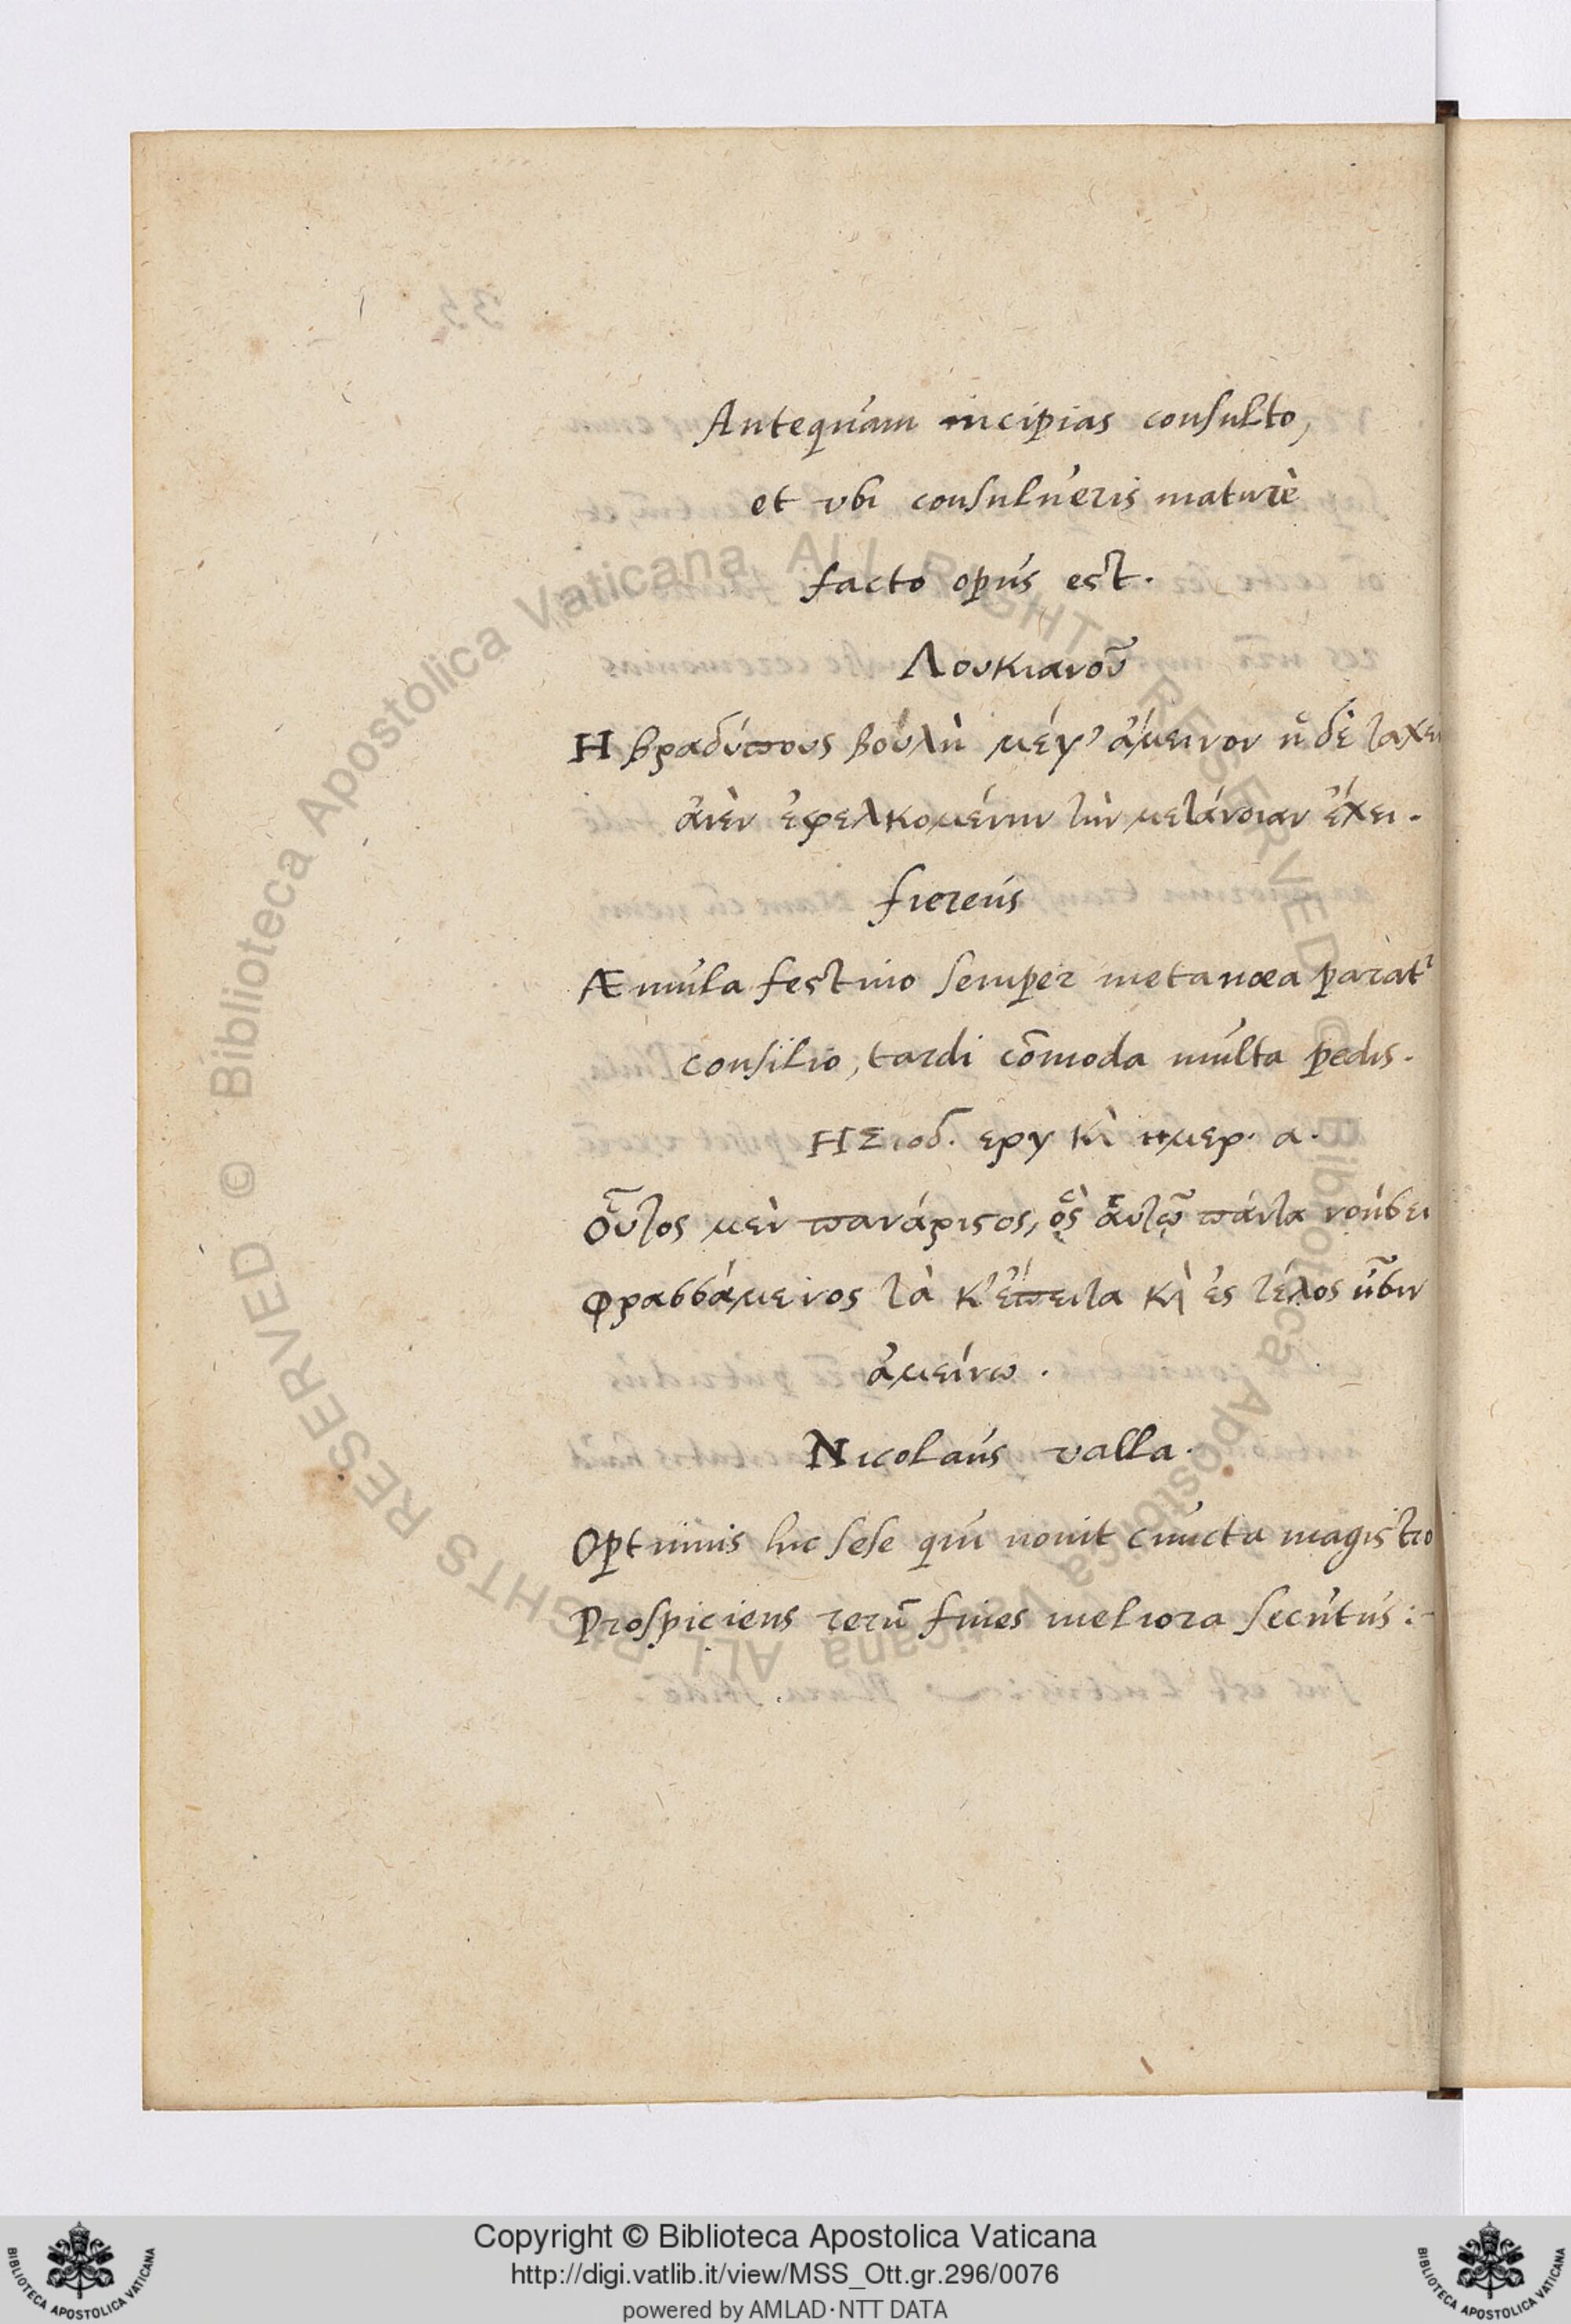 Antequam incipias consulto,
et vbi consulueris maturè
facto opus est.
Λουκιανοῦ
Η βραδύπους βουλὴ μέγ' ἀμείνον ἡ δὲ ταχει
ἀιὲν ἐφελκομένην τὴν μετάνοιαν ἔχει.
fiereus
Æmula festino semper metanœa parat
consilio, tardi cōmoda multa pedis.
ΗΣιοδ. εργ κὶ ημερ. α.
Οὗτος μὲν πανάριστος, ὃς ἁυτῷ πάντα νοήσει
Φρασσάμενος τὰ κ' ἔπειτα κὶ ἐς τέλος ἦσιν
ἀμείνω.
Nicolaus valla.
Optimus hic sese qui nouit cuncta magistro
Prospiciens rerū fines meliora secutus:-
Copyright © Biblioteca Apostolica Vaticana
http://digi.vatlib.it/view/MSS_Ott.gr.296/0076
powered by AMLAD·NTT DATA
BIBLIOTECA APOSTOLICA VATICANA
BIBLIOTECA APOSTOLICA VATICANA
© Biblioteca Apostolica Vaticana ALL RIGHTS RESERVED
© Biblioteca Apostolica Vaticana ALL RIGHTS RESERVED